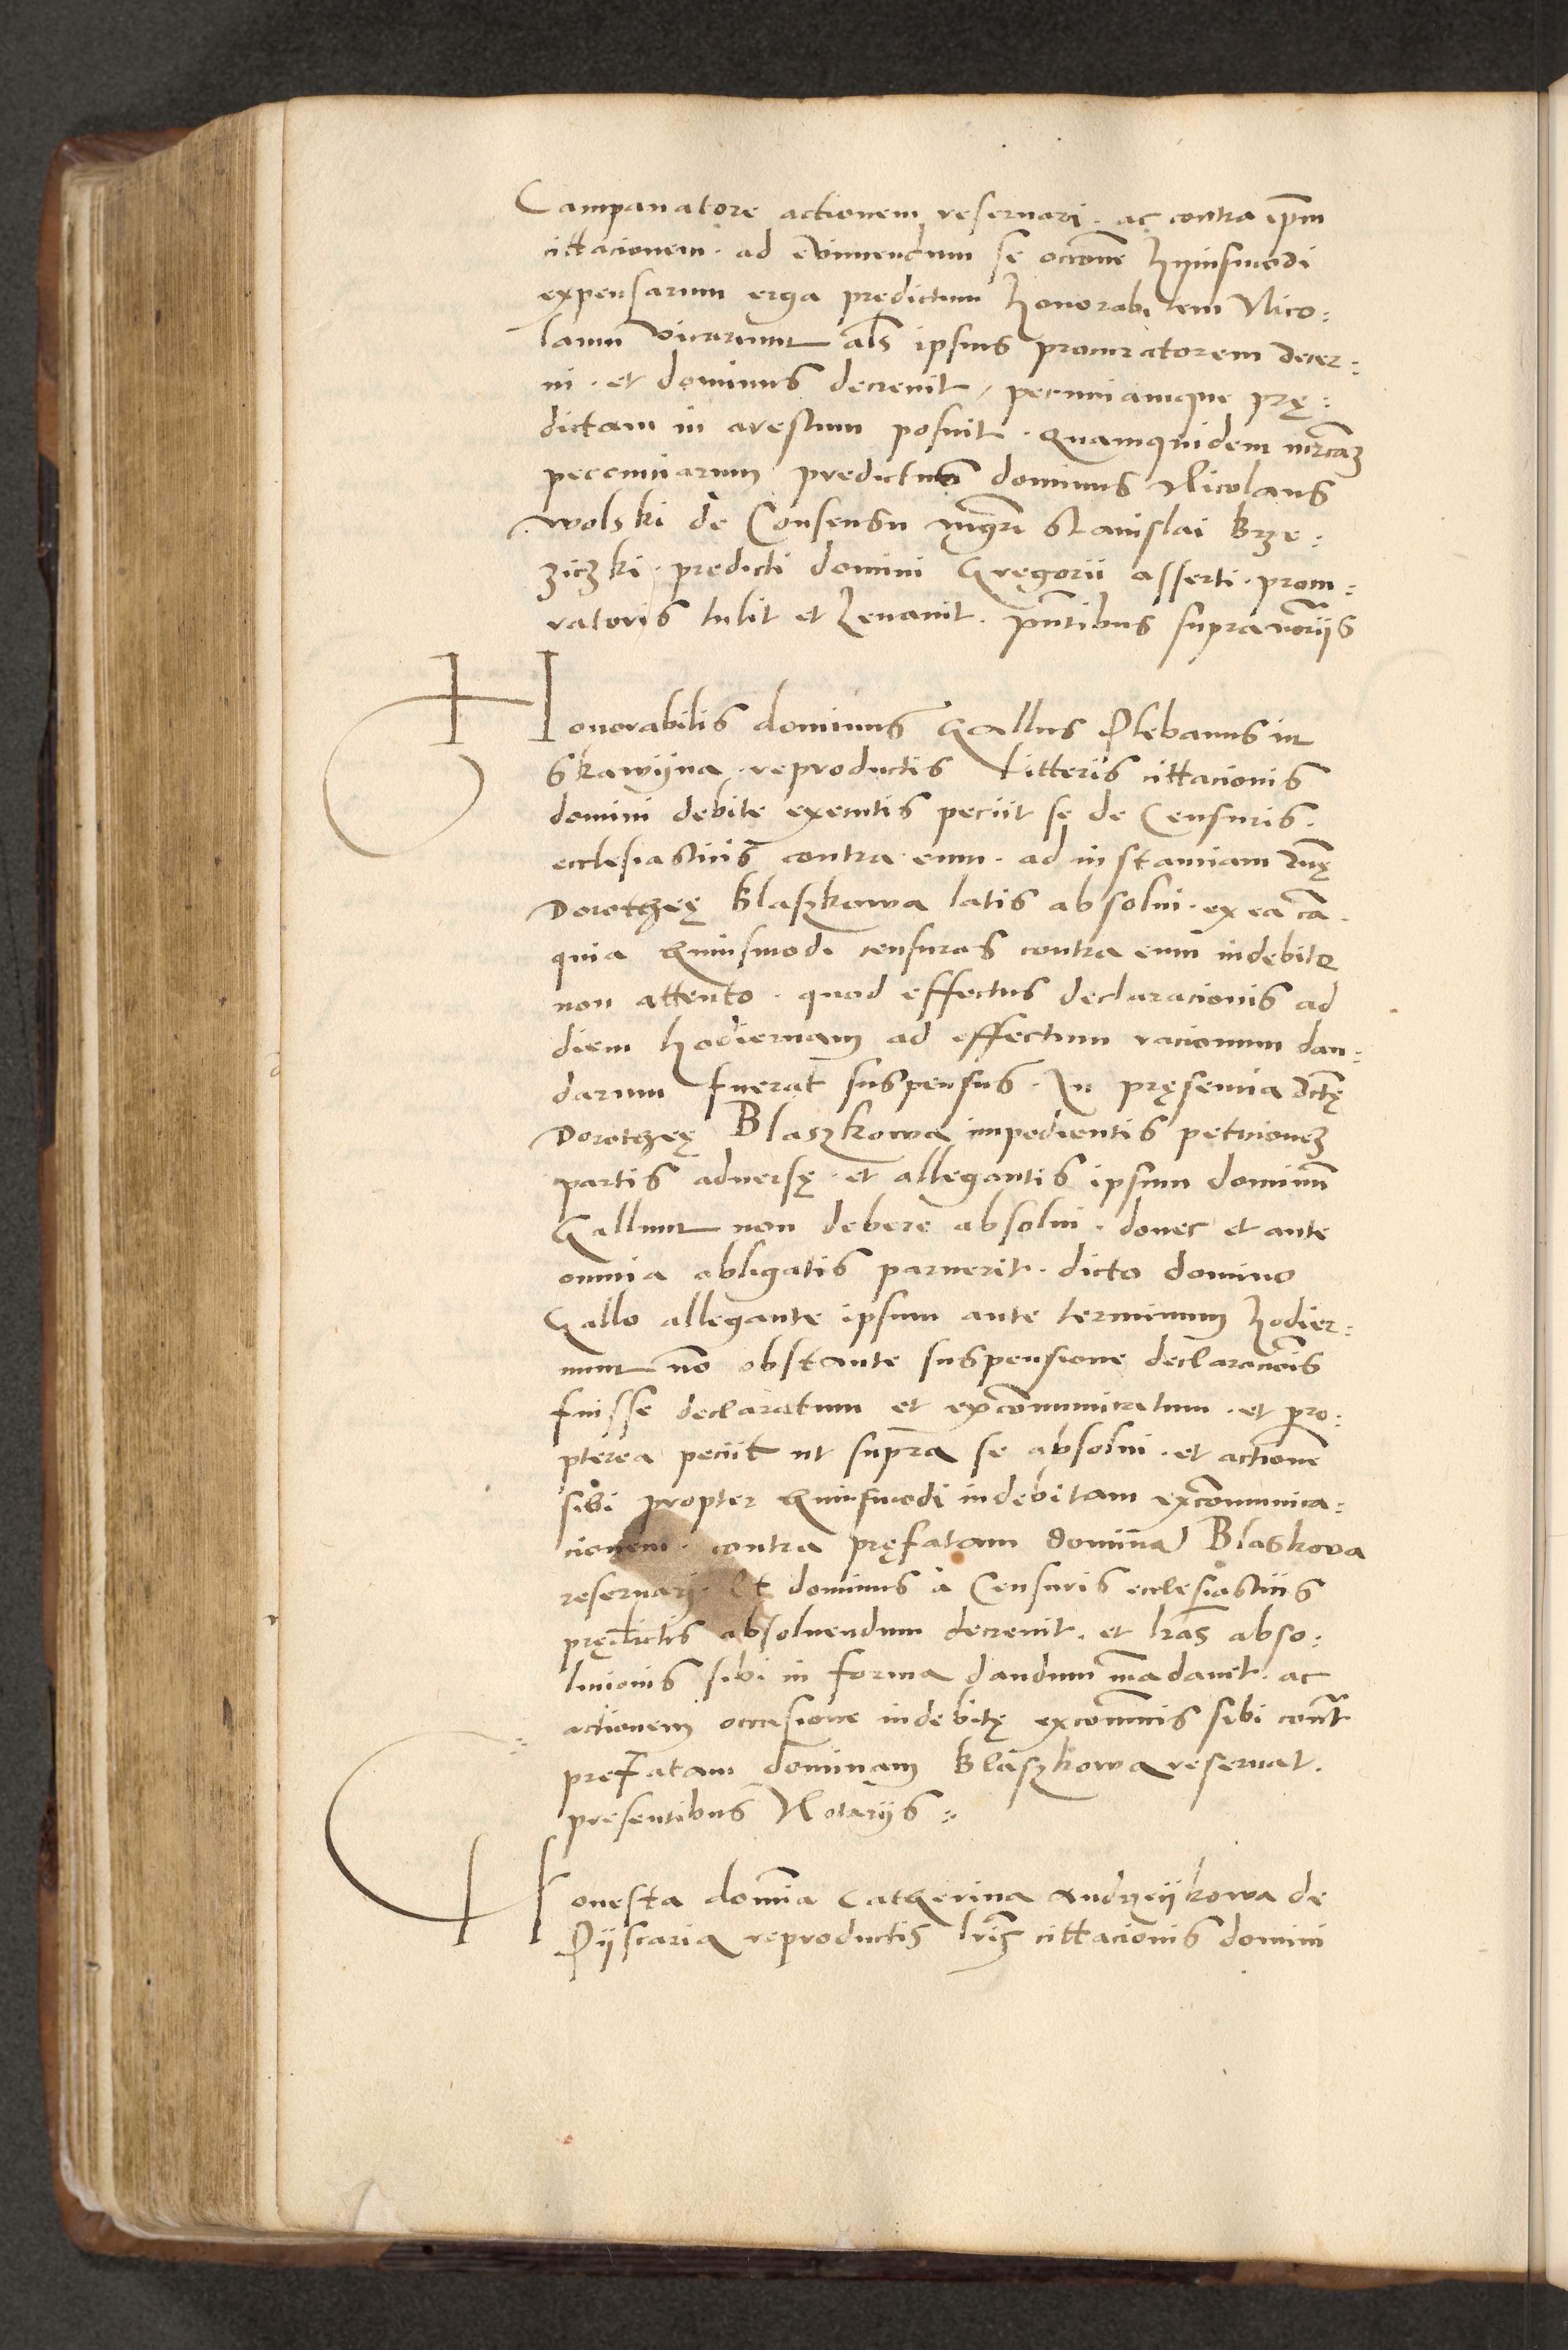 Campanatore actionem reseruari · ac contra ip̅m
cittacionem · ad euimendum se occōne hŭiusmodi
expensarum erga predictum honorabilem Nico:
laum vicarium als̄ ipsius procuratorem decer:
ni · et dominus decreuit, pecuniamque prę:
dictam in arestum posuit · Quamquidem mr̄cāʒ
peccuniarum predictus dominus Nicolaus
wolski de Consensu mgr̄i Stanislai Brze:
ziczki · predicti domini Gregorii asserti · procu:
ratoris tulit et Leuauit · pn̄tibus supranōriis
Honorabilis dominus Gallus Plebanus in
Skawyna · reproductis Litteris cittacionis
domini debite executis peciit se de Censuris
ecclesiasticis contra eum · ad instanciam dn̄ę
Dorothęę Blaszkowa latis absolui · ex ea cā ·
quia huiusmodi censuras contra eum indebite
non attento · quod effectus declaracionis ad
diem hodiernam ad effectum racionum dan:
darum fuerat suspensus · In pręsencia dc̄tę
Dorothęę Blaszkowa impedientis peticioneʒ
partis aduersę · et allegantis ipsum dominū
Gallum non debere absolui · donec et ante
omnia obligatis paruerit · dicto domino
Gallo allegante ipsum ante terminum hodier:
num nō obstante suspensione declaracōnis
fuisse declaratum et excōmunicatum · et pro:
pterea peciit ut supra se absolui · et actionē
sibi propter huiusmodi indebitam excōmunica:
cionem · contra pręfatam dominā Blaskowa
reseruari · Et dominus a Censuris ecclesiasticis
prędictis absoluendum decreuit · et lr̄as abso:
lucionis sibi in forma dandum mādauit · ac
actionem occasione indebitę excōmnis sibi cont̄
prefatam dominam Blaszkowa reseruat ·
presentibus Notariis ::
Honesta domīa Catherina Andrzeykowa de
Pyscaria reproductis lr̄is cittacionis domini